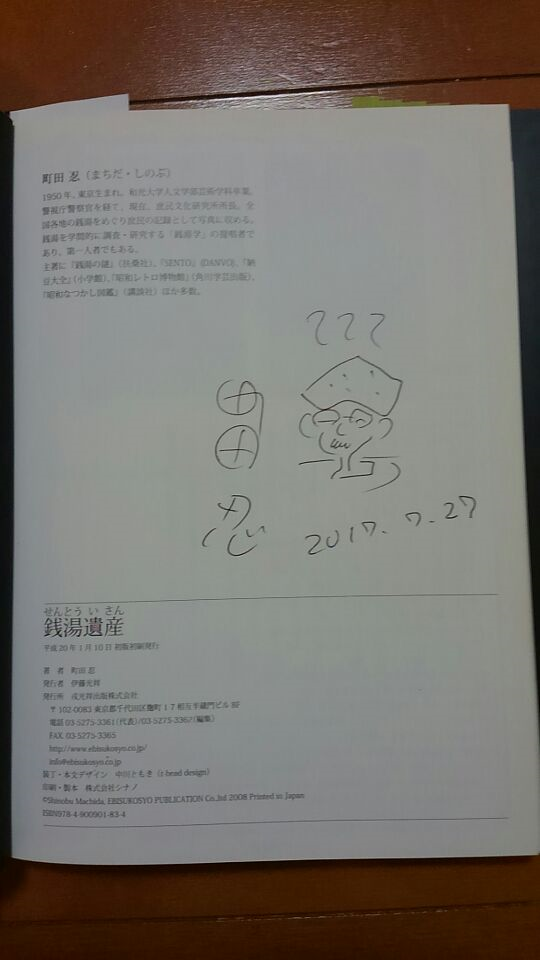 町田 忍（まちだ・しのぶ）
1950年、東京生まれ。和光大学人文学部芸術学科卒業。
警視庁警察官を経て、現在、庶民文化研究所所長。全
国各地の銭湯をめぐり庶民の記録として写真に収める。
銭湯を学問的に調査・研究する「銭湯学」の提唱者で
あり、第一人者でもある。
主著に『銭湯の謎』（扶桑社）、『SENTO』(DANVO)、『納
豆大全』（小学館）、『昭和レトロ博物館』（角川学芸出版）、
『昭和なつかし図鑑』（講談社）ほか多数。
町田
忍
2017.7.27
せんとう い さん
銭湯遺産
平成20年1月10日 初版初刷発行
著 者 町田 忍
発行者 伊藤光祥
発行所 戎光祥出版株式会社
〒102-0083 東京都千代田区麹町17相互半蔵門ビル8F
電話 03-5275-3361(代表)/03-5275-3362(編集)
FAX. 03-5275-3365
http://www.ebisukosyo.co.jp/
info@ebisukosyo.co.jp
装丁・本文デザイン 中川ともき (t-head design)
印刷・製本 株式会社シナノ
©Shinobu Machida, EBISUKOSYO PUBLICATION Co.,ltd 2008 Printed in Japan
ISBN978-4-900901-83-4